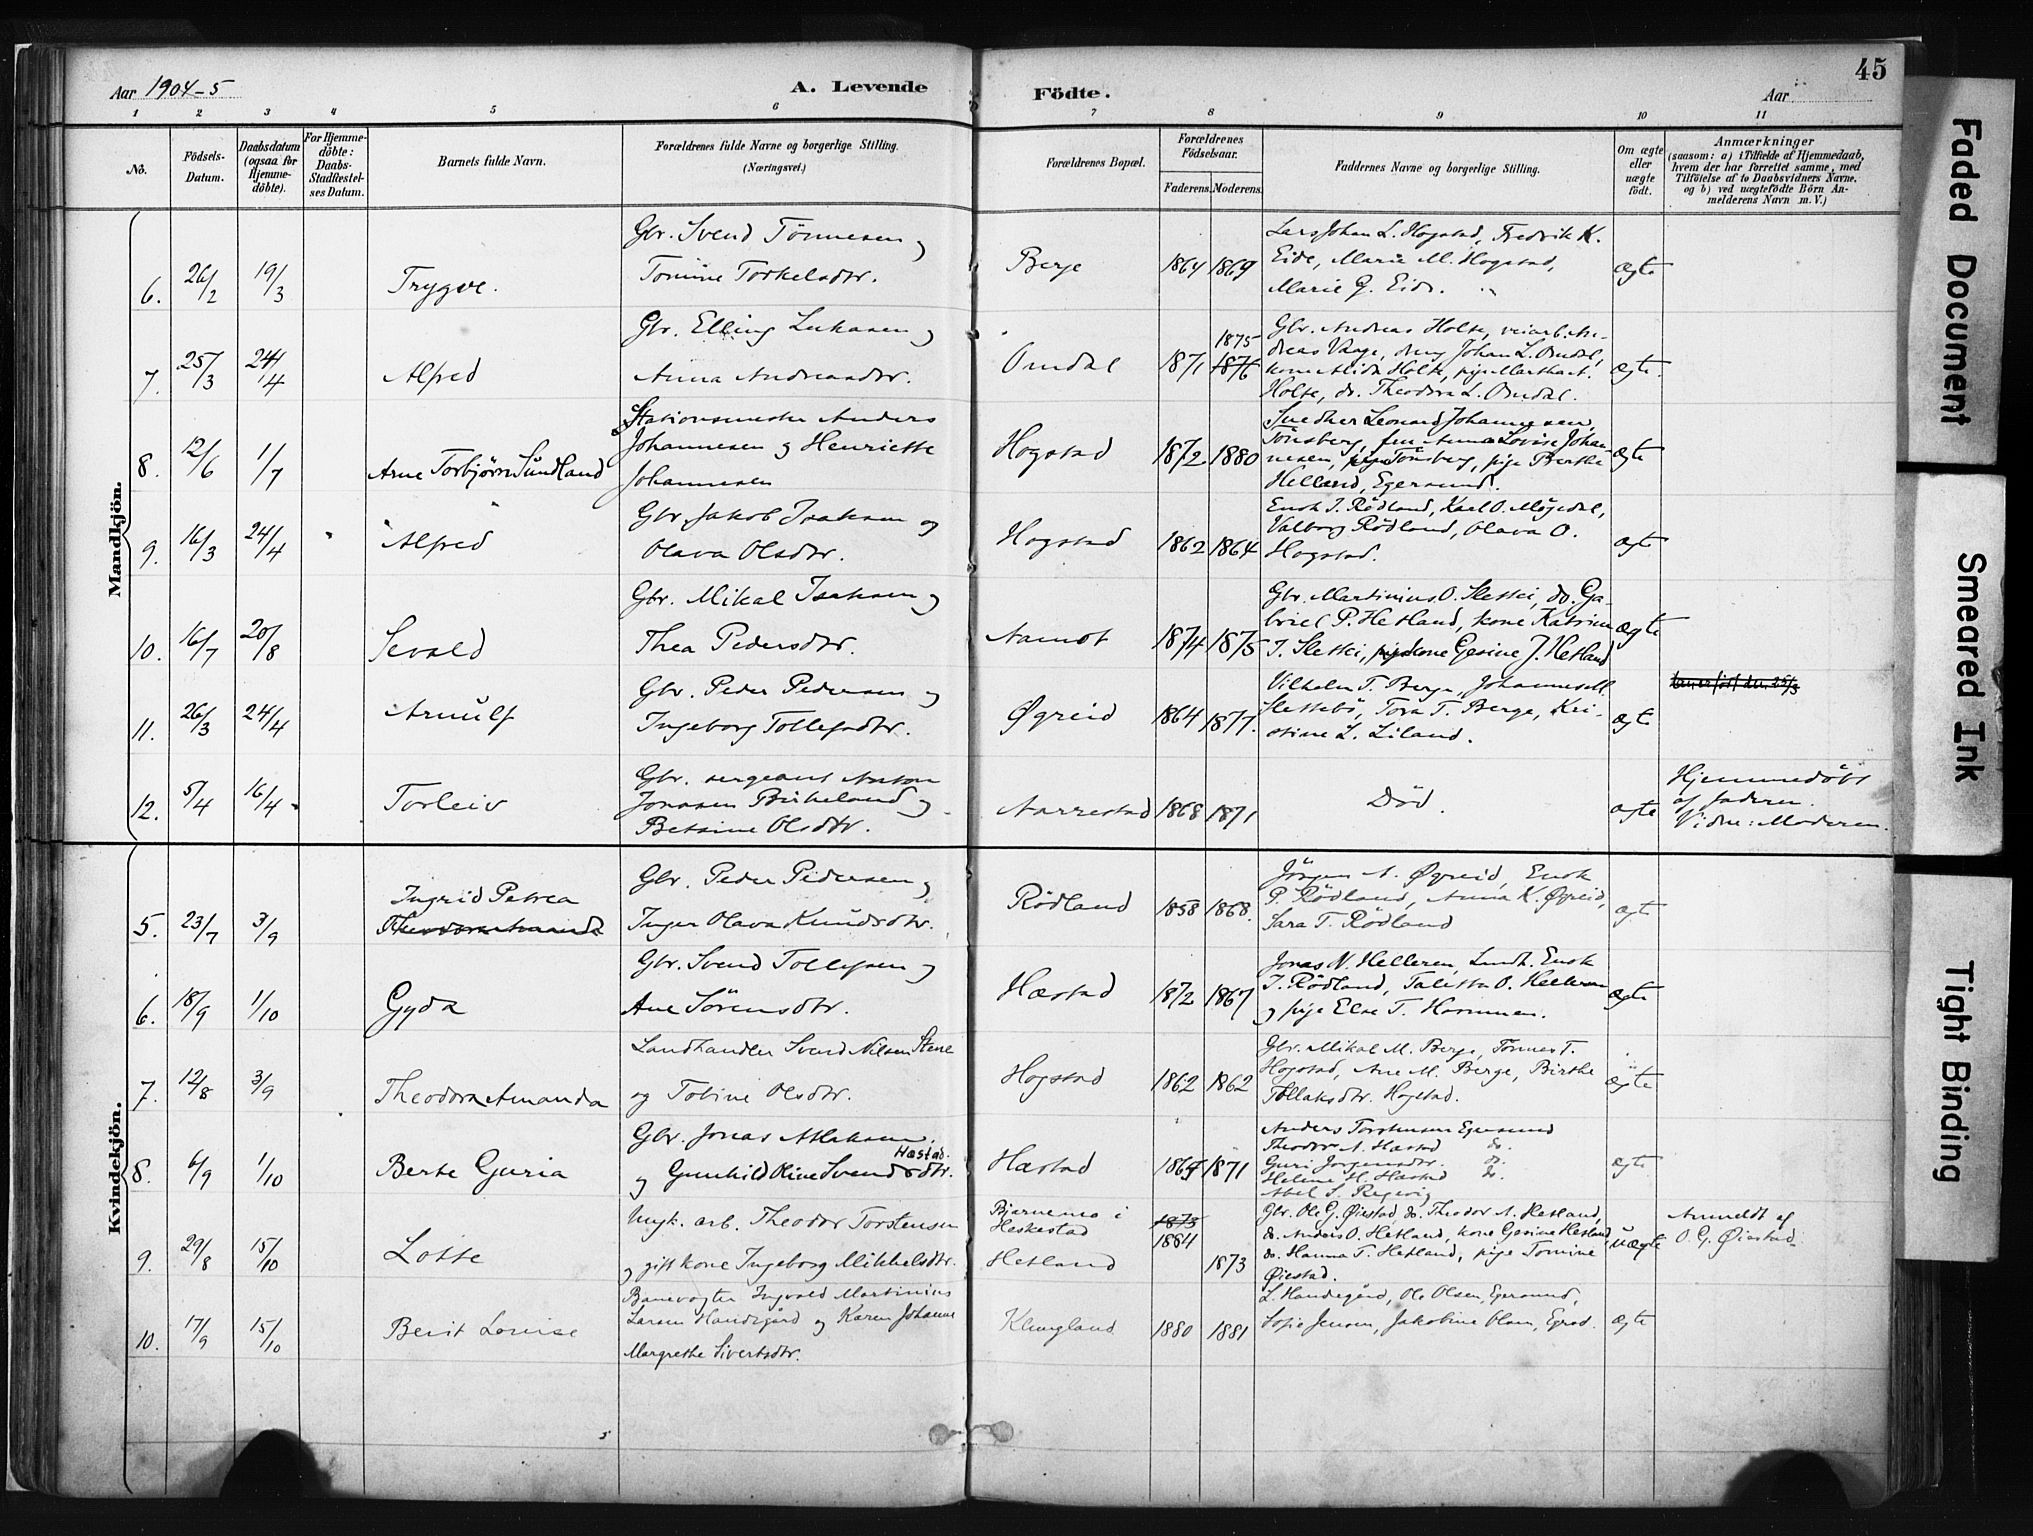 Aar 1904-5
A. Levende
Födte.
Aar
45
1 2 3 4 5 6 7 8 9 10 11
No.
Födsels-Datum.
Daabsdatum (ogsaa for Hjemme-döbte).
For Hjemme-döbte: Daabs-Stadfestel-ses Datum.
Barnets fulde Navn.
Forældrenes fulde Navne og borgerlige Stilling.
(Næringsvei.)
Forældrenes Bopæl.
Forældrenes Födselsaar.
Faderens. Moderens.
Faddernes Navne og borgerlige Stilling.
Om ægte eller uægte födt.
Anmærkninger
(saasom: a) i Tilfælde af Hjemmedaab, hvem der har forrettet samme, med Tilföielse af to Daabsvidners Navne. og b) ved uægtefödte Börn An-melderens Navn m. V.)
Mandkjön.
6. 26/2 19/3 Trygve.
Gbr. Svend Tönnesen og
Tomine Torkelsdtr.
Berge 1864 1869
Lars Johan L. Hogstad, Fredrik K.
Eide, Marie M. Hogstad,
Marie G. Eide.
ægte
7. 25/3 24/4 Alfred
Gbr. Elling Lukasen og
Anna Andreasdtr.
Omdal 1871 1875
1876
Gbr. Andreas Holte, veiarb. An-
dreas Vaage, dreng Johan L. Omdal,
kone Alida Holte, pige Martha A.
Holte, do. Theodora L. Omdal.
ægte.
8. 12/6 1/7 Arne Torbjørn Sundland
Stationsmester Anders
Johannesen og Henriette
Johannesen
Hogstad 1872 1880
Snedker Leonard Johannesen,
Tönsberg, fru Anna Lovise Johan-
nesen, Tönsberg, pige Berthe
Helland, Egersund.
ægte
9. 16/3 24/4 Alfred
Gbr. Jakob Isaksen og
Olava Olsdtr.
Hogstad 1862 1864
Enok I. Rödland, Karl O. Mögedal,
Valborg Rödland, Olava O.
Hogstad.
ægte
10. 16/7 20/8 Sevald
Gbr. Mikal Isaksen og
Thea Pedersdtr.
Aamot 1874 1875
Gbr. Martinius O. Slettei, do. Ga-
briel P. Hetland, kone Katrine
T. Slettei, kone Gesine J. Hetland
ægte
11. 26/3 24/4 Arnulf
Gbr. Peder Pedersen og
Ingeborg Tollefsdtr.
Øgreid 1864 1877.
Vilhelm T. Berge, Johannes M.
Slettebö, Tora T. Berge, Kri-
stine L. Liland.
ægte
12. 5/4 16/4 Torleiv
Gbr. sergeant Anton
Jonassen Birkeland og
Betsine Olsdtr.
Aarrestad 1868 1871
Död.
ægte
Hjemmedöbt
af faderen.
Vidne: Moderen.
Kvindekjön.
5. 23/7 3/9 Ingrid Petrea
Gbr. Peder Pedersen og
Inger Olava Knudsdtr.
Rödland 1858 1868.
Jörgen A. Øgreid, Enok
P. Rödland, Anna K. Øgreid,
Sara T. Rödland
ægte
6. 18/9 1/10 Gyda
Gbr. Svend Tollefsen og
Ane Sörensdtr.
Hæstad 1872 1867
Jonas N. Helleren, Lundh. Enok
I. Rödland, Talette O. Helleren
og pige Else T. Hammen.
ægte
7. 12/8 3/9 Theodora Amanda
Landhandler Svend Nilsen Stene
og Tobine Olsdtr.
Hogstad 1862 1862
Gbr. Mikal M. Berge, Tönnes T.
Hogstad, Ane M. Berge, Birthe
Tollaksdtr. Hogstad.
ægte
8. 6/9 1/10 Berte Guria
Gbr. Jonas Aslaksen
Hæstad.
og Gunhild Oline Svendsdtr.
Hæstad 1864 1871
Anders Torstensen Egersund
Theodor A. Hæstad do.
Guri Jörgensdtr. do.
Helene H. Hæstad do.
Abel S. Regevig
ægte
9. 29/8 15/10 Lotte
Ungk. arb. Theodor Torstensen
og gift kone Ingeborg Mikkelsdtr.
Bjarnemo i
Heskestad
Hetland
1873
1884
1873
Gbr. Ole G. Øiestad, do. Theodor A. Hetland,
do. Anders O. Hetland, kone Gesine Hetland,
do. Hanna T. Hetland, pige Tomine
Øiestad.
uægte
Anmeldt af
O. G. Øiestad.
10. 17/9 15/10 Berit Louise
Banevogter Ingvald Martinius
Larsen Handegård og Karen Johanne
Margrethe Sivertsdtr.
Klungland 1880 1881
L. Handegård, Ole Olsen, Egersund,
Sofie Jensen, Jakobine Olsen, Egrsd.
ægte
Faded Document
Smeared Ink
Tight Binding